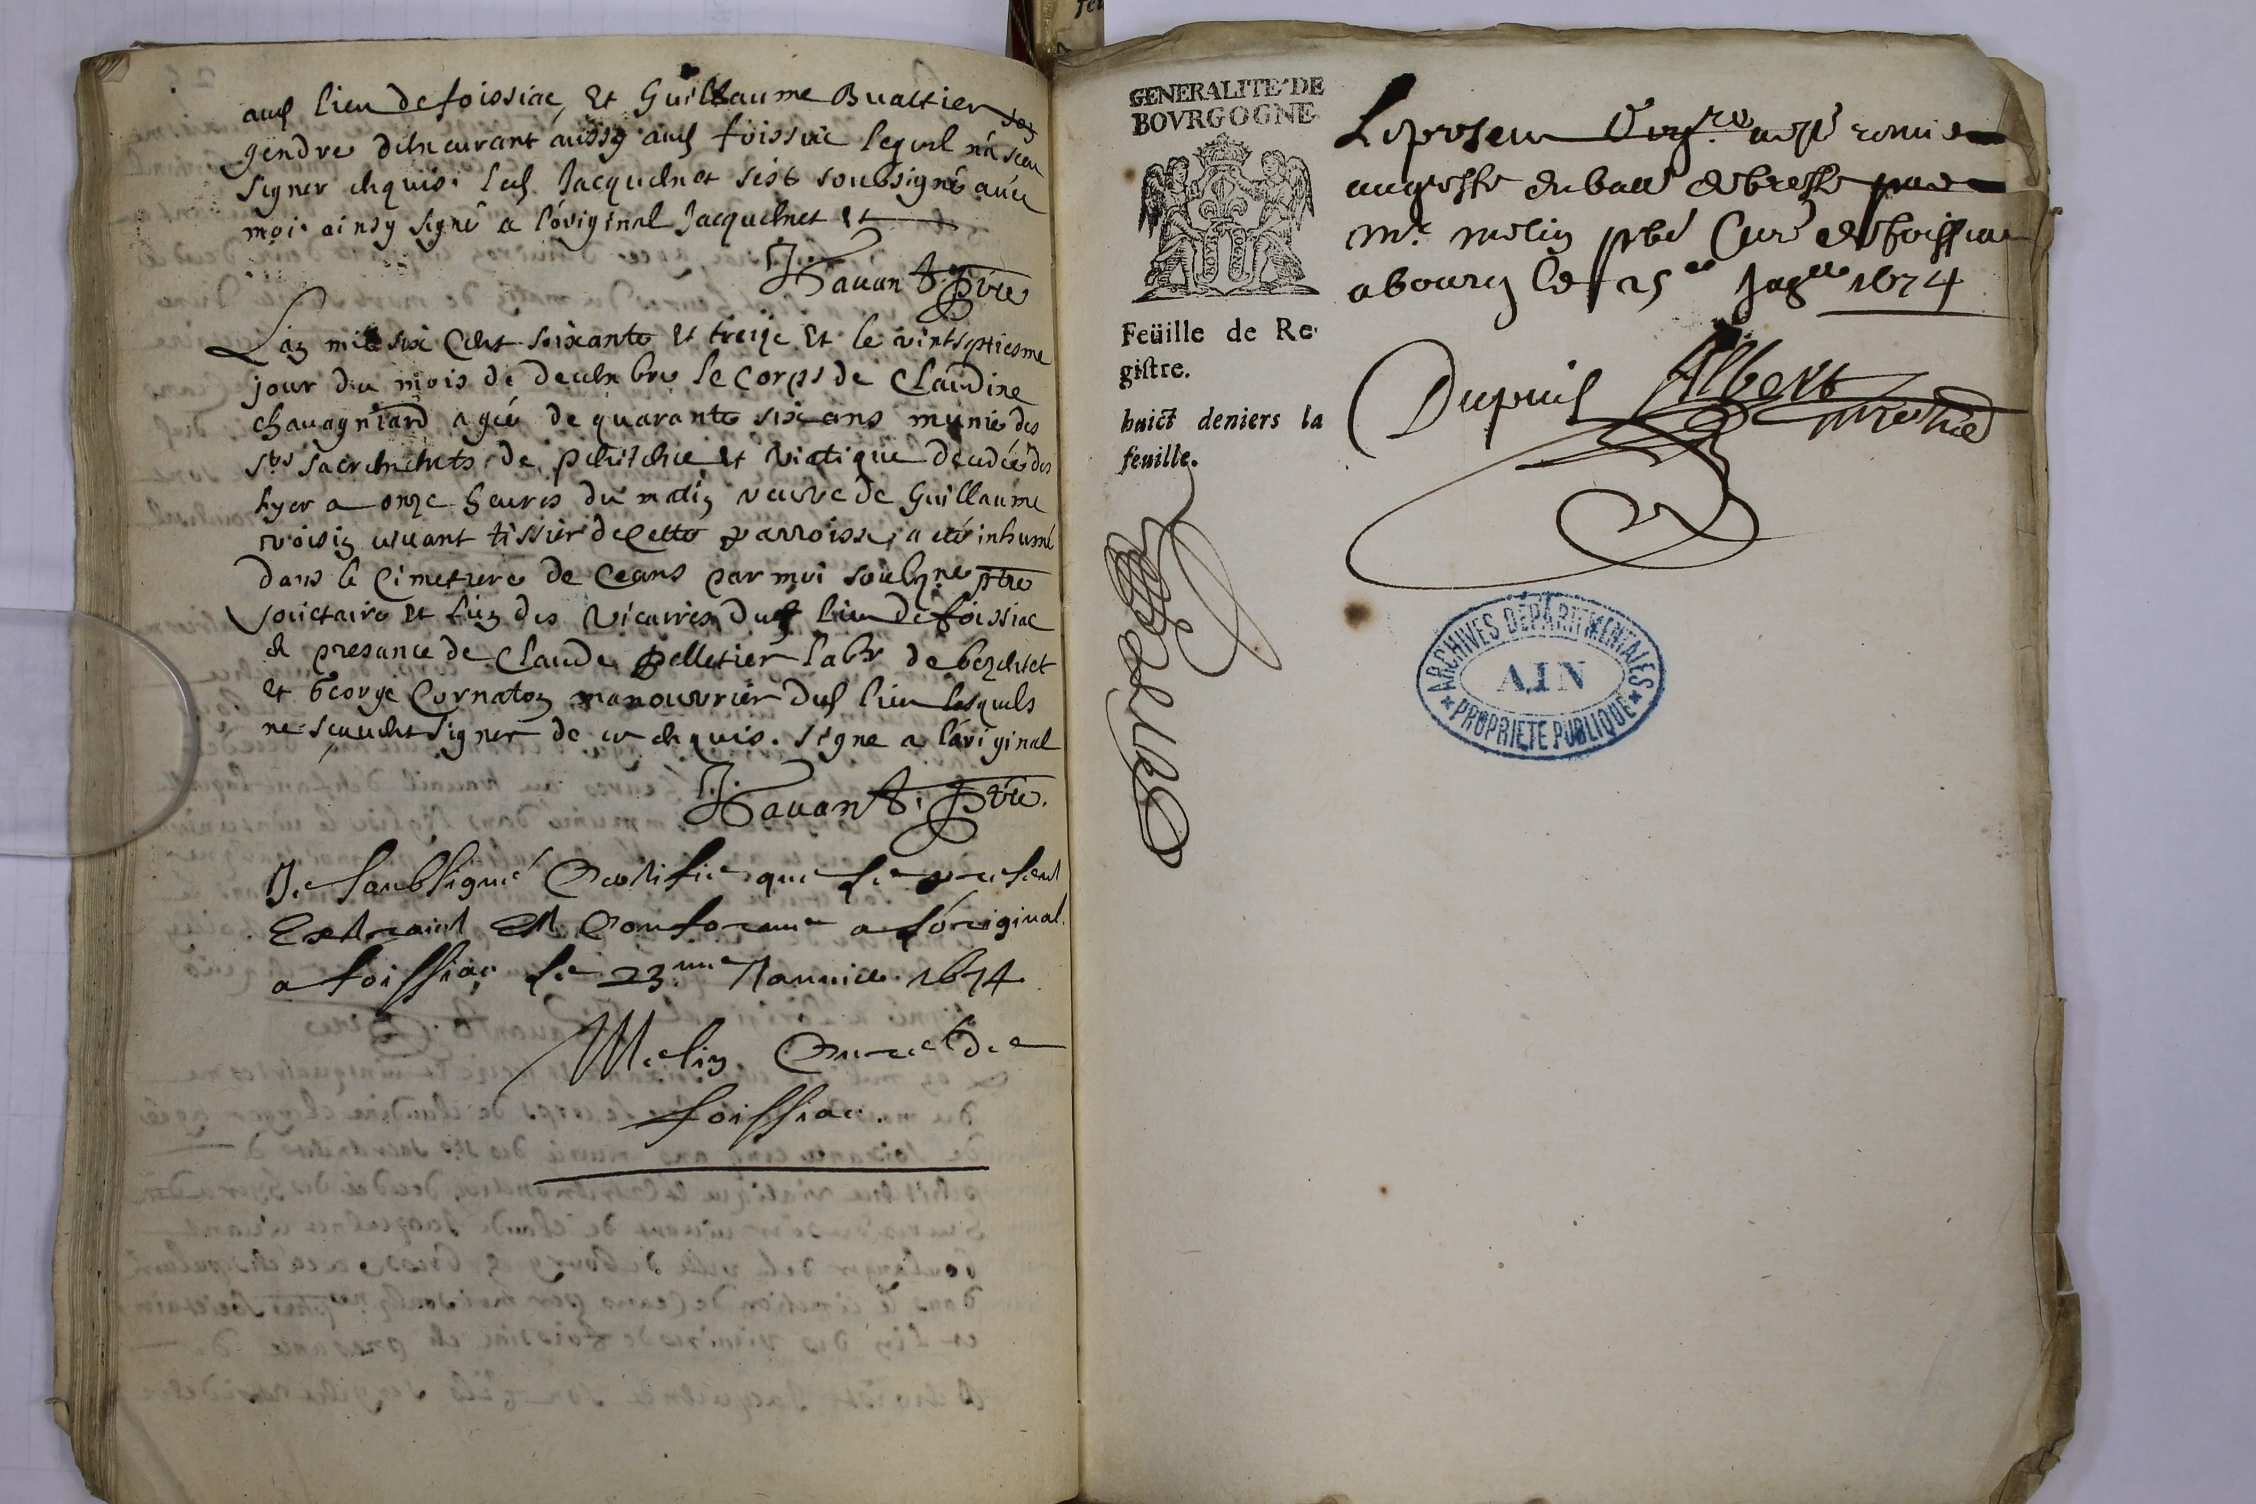 aud lieu de foissiac, Et Guillaume Buattier son
gendre demeurant aussy aud foissiac lequel n'a sceu
signer enquis. led Jacquemet s'est soubsigné avec
moi ainsy signé a l'original Jacquemet et
Favant ptre
L'an mil six cent soixante et treize Et le vintseptiesme
jour du mois de decembre le corps de Claudine
chavagniard agée de quarante six ans munie des
sts sacrements de penitence et viatique decedée des
hyer a onze heures du matin veuve de Guillaume
voisin vivant tissier de cette parroisse, a eté inhumé
dans le cimetiere de ceans par moi soubsne ptre
societaire et l'un des vicaires dud lieu de foissiac
en presance de Claude pelletier labr de
et George Cornaton manouvrier dud lieu lesquels
ne scavent signer de ce enquis. signé a l'original
Favant. ptre.
Je soubsigné Certifie que le present
Extraict est Conforme a l'original.
a foissiac le 23me Janvier 1674
Melin Curé de
foissiac.
GENERALITE DE
BOVRGOGNE
Feüille de Re-
gistre.
huict deniers la
feuille.
Le present
du bail de bresse par
Mr melin ptre Curé de foissiac
a bourg le 25e Janer 1674
Dupuis Albert
ARCHIVES DÉPARTEMENTALES
AIN
PROPRIETE PUBLIQUE